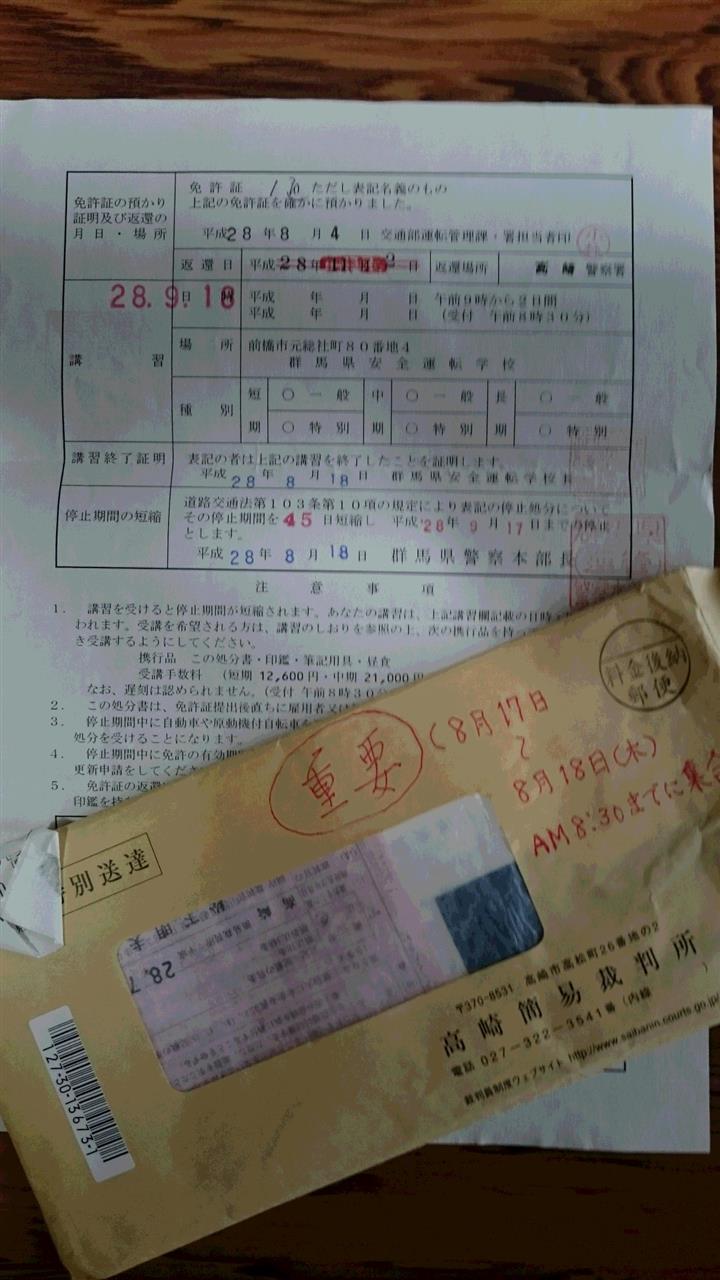 免許証の預かり
証明及び返還の
月日・場所
免許証 ただし表記名義のもの
上記の免許証を確かに預かりました。
平成28年8月4日 交通部運転管理課・署担当者印
返還日 平成28年 日 返還場所 高崎警察署
講習
28.9.18
日 平成 年 月 日 午前9時から2日間
平成 年 月 日 (受付 午前8時30分)
場所 前橋市元総社町80番地4
群馬県安全運転学校
種別 短期 〇一般 中期 〇一般 長期 〇一般
〇特別 〇特別 〇特別
講習終了証明
表記の者は上記の講習を終了したことを証明します。
平成28年8月18日 群馬県安全運転学校長
停止期間の短縮
道路交通法第103条第10項の規定により表記の停止処分について
その停止期間を45日短縮し 平成28年9月17日までの停止
とします。
平成28年8月18日 群馬県警察本部長
注意事項
1. 講習を受けると停止期間が短縮されます。あなたの講習は、上記講習欄記載の日時
われます。受講を希望される方は、講習のしおりを参照の上、次の携行品を持っ
き受講するようにしてください。
携行品 この処分書・印鑑・筆記用具・昼食
受講手数料 (短期 12,600円・中期 21,000円
なお、遅刻は認められません。(受付 午前8時30分
2. この処分書は、免許証提出後直ちに雇用者又は
3. 停止期間中に自動車や原動機付自転車を
処分を受けることになります。
4. 停止期間中に免許の有効期
更新申請をしてくださ
5. 免許証の返還
印鑑を持
料金後納
郵便
重要
(8月17日
〜
8月18日(木)
AM8:30までに集合
別送達
28.7
127-30-13673-1
〒370-8531 高崎市高松町26番地の2
高崎簡易裁判所
電話 027-322-3541番(内線
裁判員制度ウェブサイト http://www.saibanin.courts.go.jp/